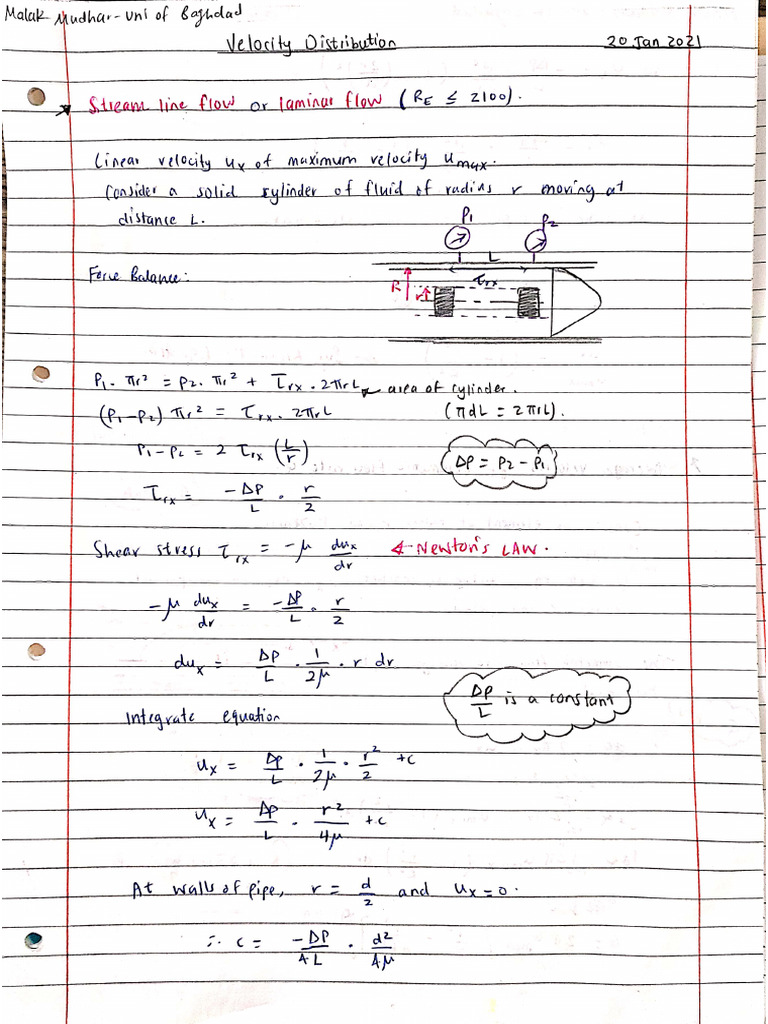 Malak Mudhar - Uni of Baghdad
Velocity Distribution
20 Jan 2021
Stream line flow or laminar flow (RE ≤ 2100).
Linear velocity ux of maximum velocity umax.
Consider a solid cylinder of fluid of radius r moving at
distance L.
P1 P2
L
Force Balance:
τrx
R r
P1 . πr² = P2 . πr² + τrx . 2πrL ← area of cylinder.
(P1-P2) πr² = τrx . 2πrL (πdL = 2πrL).
P1-P2 = 2 τrx (L/r)
ΔP = P2 - P1
τrx = -ΔP/L . r/2
Shear stress τrx = -μ dux/dr ← NEWTON'S LAW.
-μ dux/dr = -ΔP/L . r/2
dux = ΔP/L . 1/2μ . r dr
ΔP/L is a constant
Integrate equation
ux = ΔP/L . 1/2μ . r²/2 + c
ux = ΔP/L . r²/4μ + c
At walls of pipe, r = d/2 and ux = 0.
∴ c = -ΔP/4L . d²/4μ